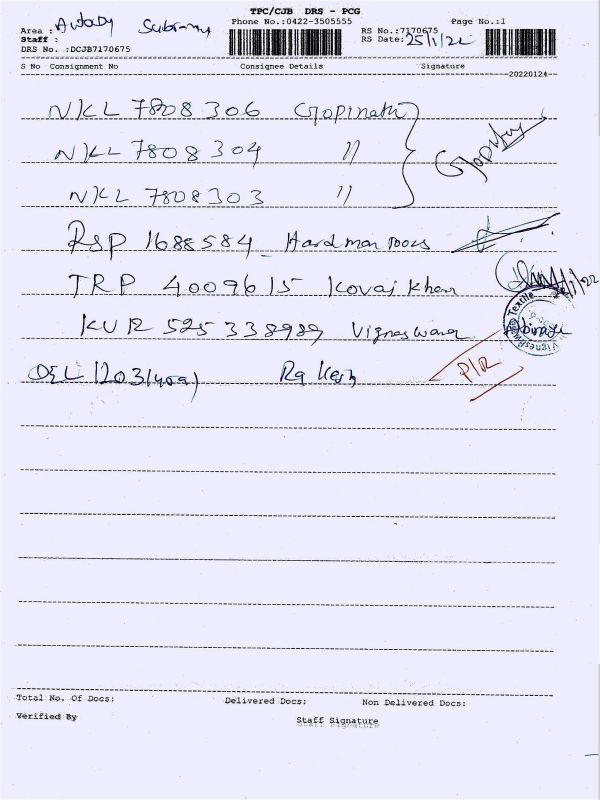 TPC/CJB DRS - PCG
Area : Subramy
Phone No.:0422-3505555
Page No.:1
Staff :
RS No.:7170675
DRS No. :DCJB7170675
RS Date: 25/1/22
S No Consignment No Consignee Details Signature
20220124
NKL 7808306 Gopinath
NKL 7808304 "
NKL 7808303 "
RSP 1688584 Hardman Tools
TRP 4009615 Kovai Khan
KUR 525338989 Vigneswara
Rakesh
P/R
Total No. Of Docs: Delivered Docs: Non Delivered Docs:
Verified By Staff Signature